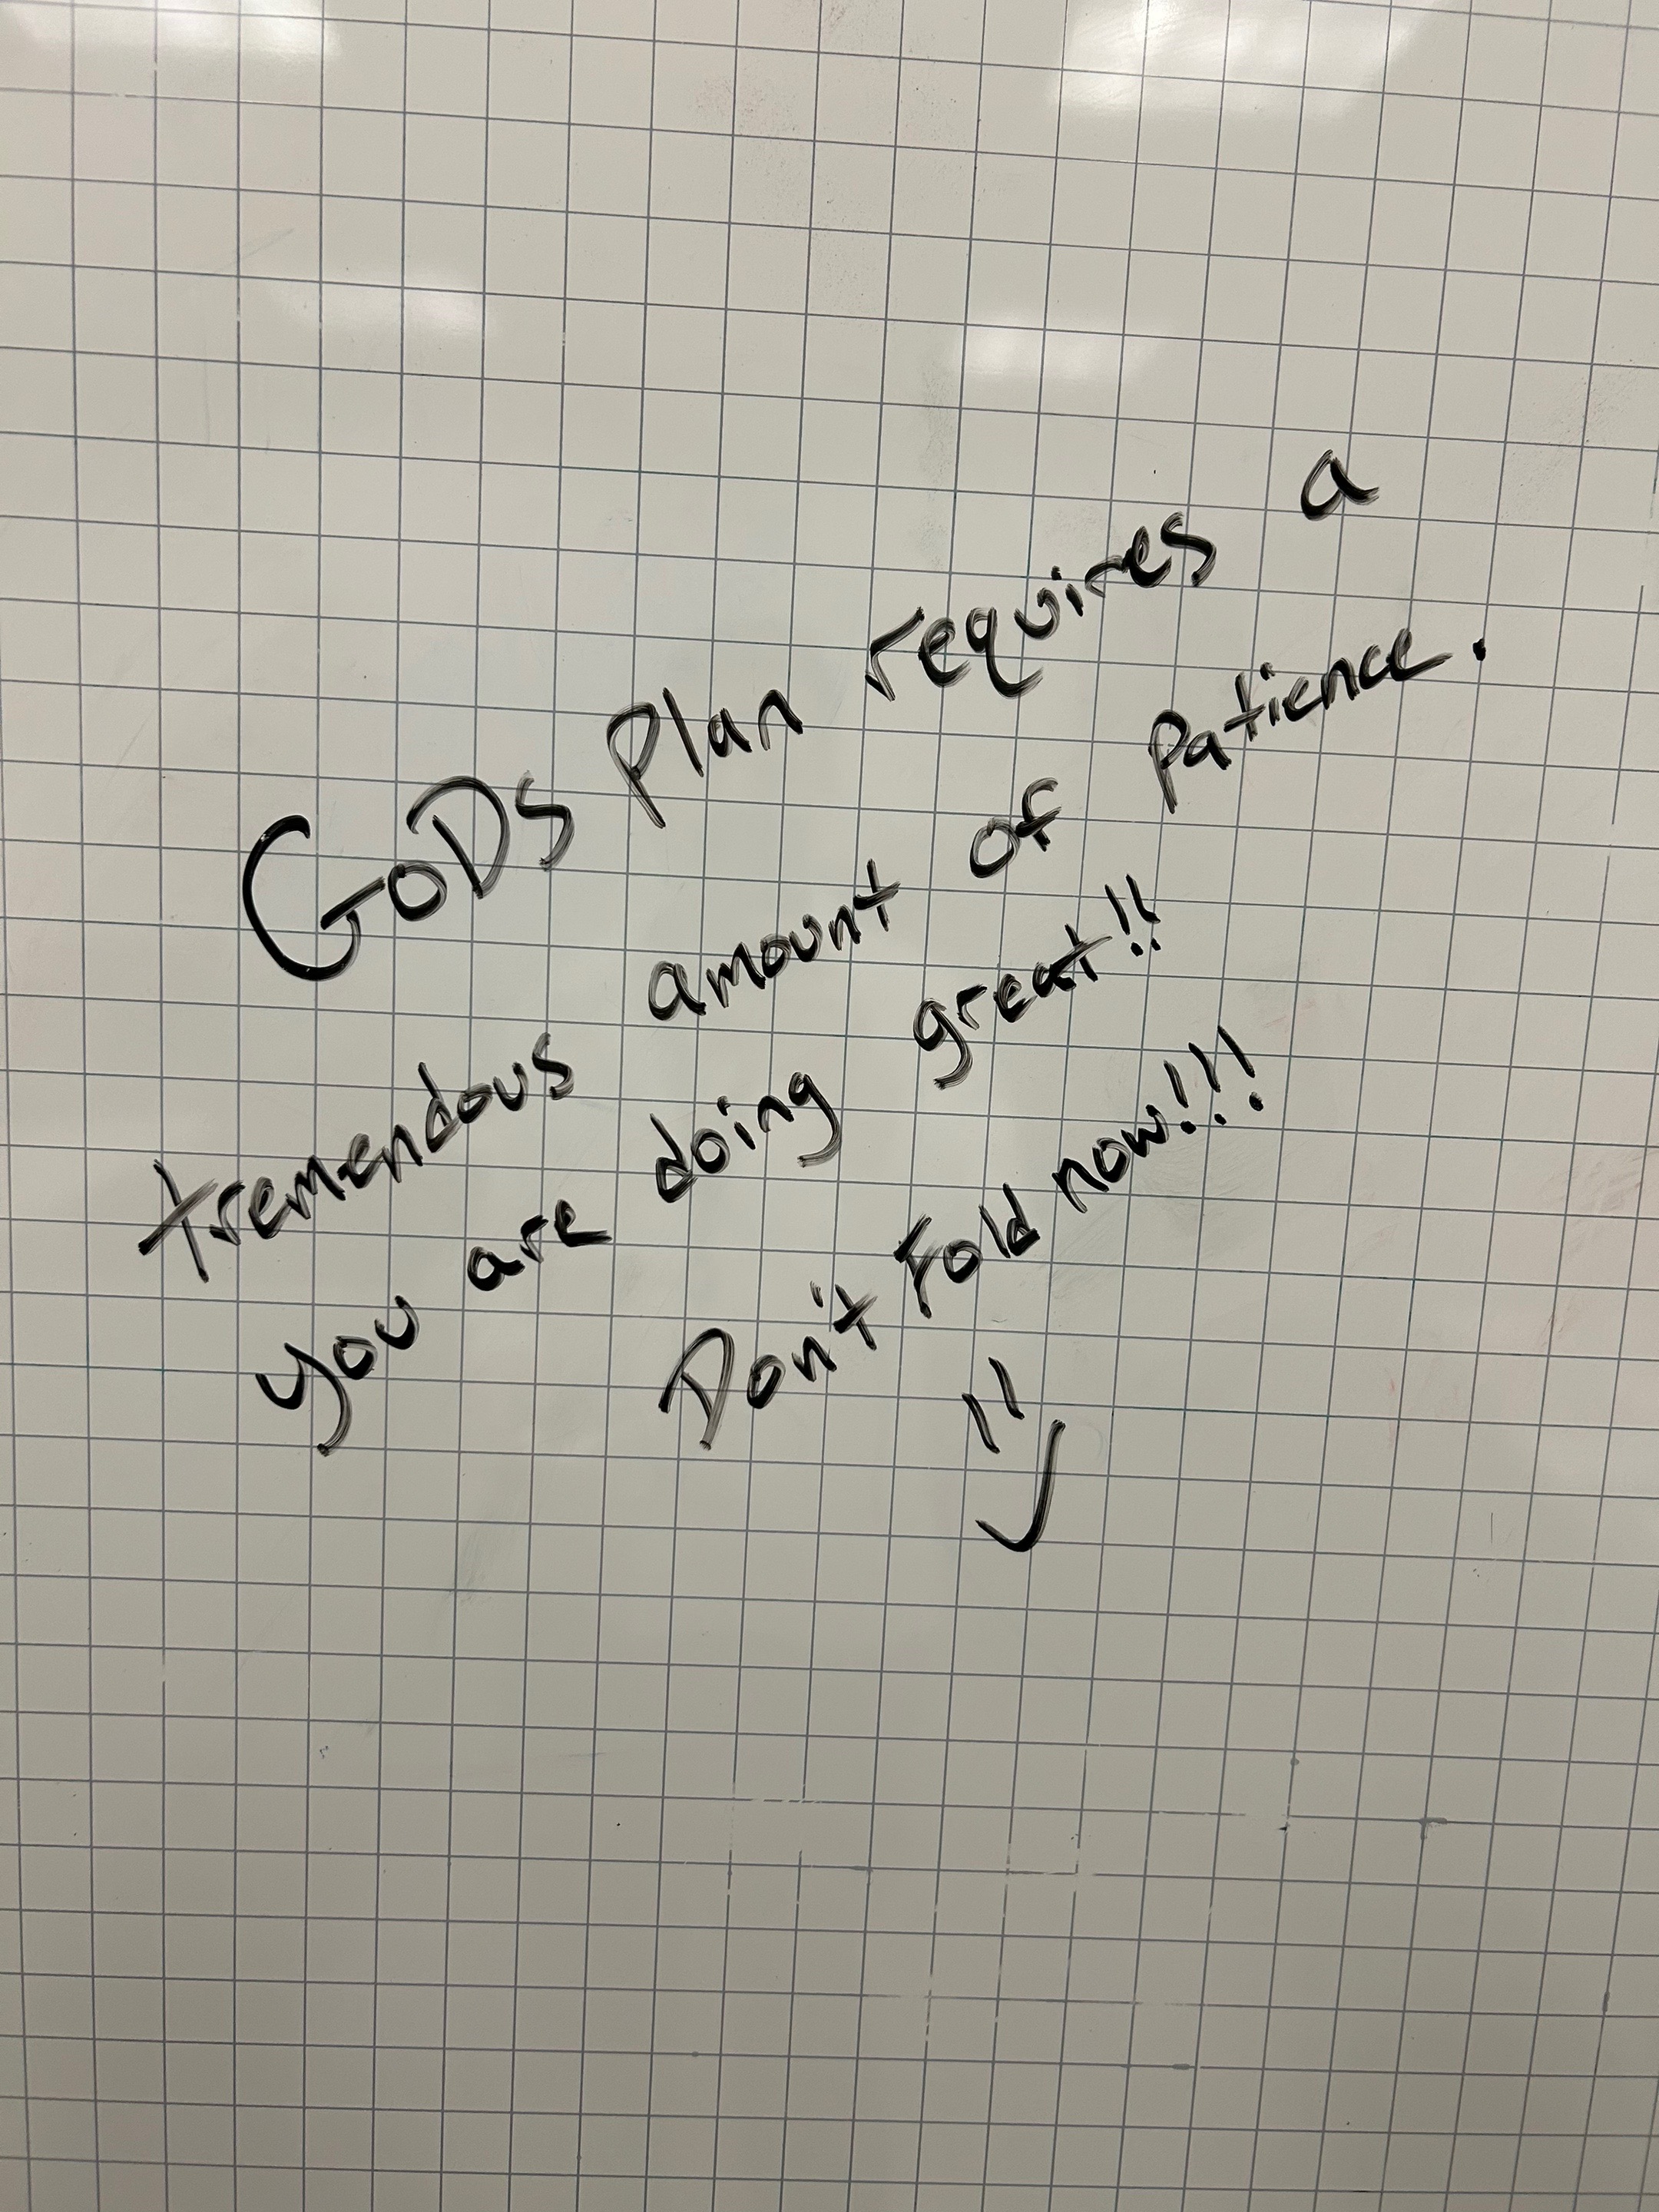 GoDs Plan requires a
tremendous amount of Patience.
you are doing great!!
Don't Fold now!!!